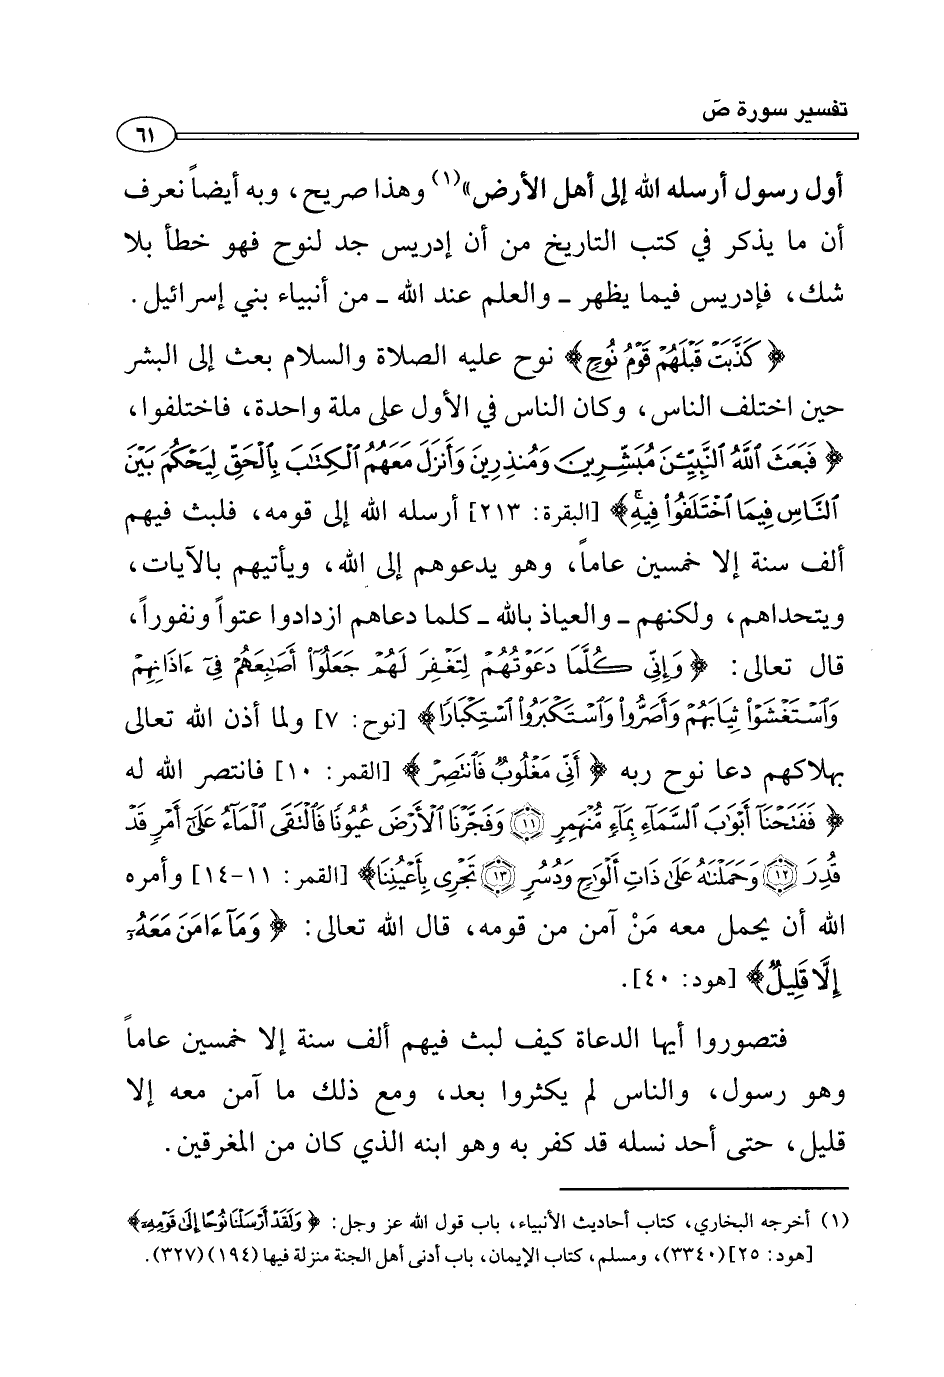 تفسير سورة صَ
٦١
أول رسول أرسله الله إلى أهل الأرض»(١) وهذا صريح، وبه أيضاً نعرف
أن ما يذكر في كتب التاريخ من أن إدريس جد لنوح فهو خطأ بلا
شك، فإدريس فيما يظهر ـ والعلم عند الله ـ من أنبياء بني إسرائيل.
﴿ كَذَّبَتْ قَبْلَهُمْ قَوْمُ نُوحٍ﴾ نوح عليه الصلاة والسلام بعث إلى البشر
حين اختلف الناس، وكان الناس في الأول على ملة واحدة، فاختلفوا،
﴿ فَبَعَثَ ٱللَّهُ ٱلنَّبِيِّـۧنَ مُبَشِّرِينَ وَمُنذِرِينَ وَأَنزَلَ مَعَهُمُ ٱلْكِتَٰبَ بِٱلْحَقِّ لِيَحْكُمَ بَيْنَ
ٱلنَّاسِ فِيمَا ٱخْتَلَفُوا۟ فِيهِۚ﴾ [البقرة: ٢١٣] أرسله الله إلى قومه، فلبث فيهم
ألف سنة إلا خمسين عاماً، وهو يدعوهم إلى الله، ويأتيهم بالآيات،
ويتحداهم، ولكنهم ـ والعياذ بالله ـ كلما دعاهم ازدادوا عتواً ونفوراً،
قال تعالى: ﴿ وَإِنِّى كُلَّمَا دَعَوْتُهُمْ لِتَغْفِرَ لَهُمْ جَعَلُوٓا۟ أَصَٰبِعَهُمْ فِىٓ ءَاذَانِهِمْ
وَٱسْتَغْشَوْا۟ ثِيَابَهُمْ وَأَصَرُّوا۟ وَٱسْتَكْبَرُوا۟ ٱسْتِكْبَارًا﴾ [نوح: ٧] ولما أذن الله تعالى
بهلاكهم دعا نوح ربه ﴿ أَنِّى مَغْلُوبٌ فَٱنتَصِرْ ﴾ [القمر: ١٠] فانتصر الله له
﴿ فَفَتَحْنَآ أَبْوَٰبَ ٱلسَّمَآءِ بِمَآءٍ مُّنْهَمِرٍ ١١ وَفَجَّرْنَا ٱلْأَرْضَ عُيُونًا فَٱلْتَقَى ٱلْمَآءُ عَلَىٰٓ أَمْرٍ قَدْ
قُدِرَ ١٢ وَحَمَلْنَٰهُ عَلَىٰ ذَاتِ أَلْوَٰحٍ وَدُسُرٍ ١٣ تَجْرِى بِأَعْيُنِنَا﴾ [القمر: ١١-١٤] وأمره
الله أن يحمل معه مَنْ آمن من قومه، قال الله تعالى: ﴿ وَمَآ ءَامَنَ مَعَهُۥٓ
إِلَّا قَلِيلٌ﴾ [هود: ٤٠].
فتصوروا أيها الدعاة كيف لبث فيهم ألف سنة إلا خمسين عاماً
وهو رسول، والناس لم يكثروا بعد، ومع ذلك ما آمن معه إلا
قليل، حتى أحد نسله قد كفر به وهو ابنه الذي كان من المغرقين.
(١) أخرجه البخاري، كتاب أحاديث الأنبياء، باب قول الله عز وجل: ﴿ وَلَقَدْ أَرْسَلْنَا نُوحًا إِلَىٰ قَوْمِهِۦ﴾
[هود: ٢٥] (٣٣٤٠)، ومسلم، كتاب الإيمان، باب أدنى أهل الجنة منزلة فيها (١٩٤) (٣٢٧).